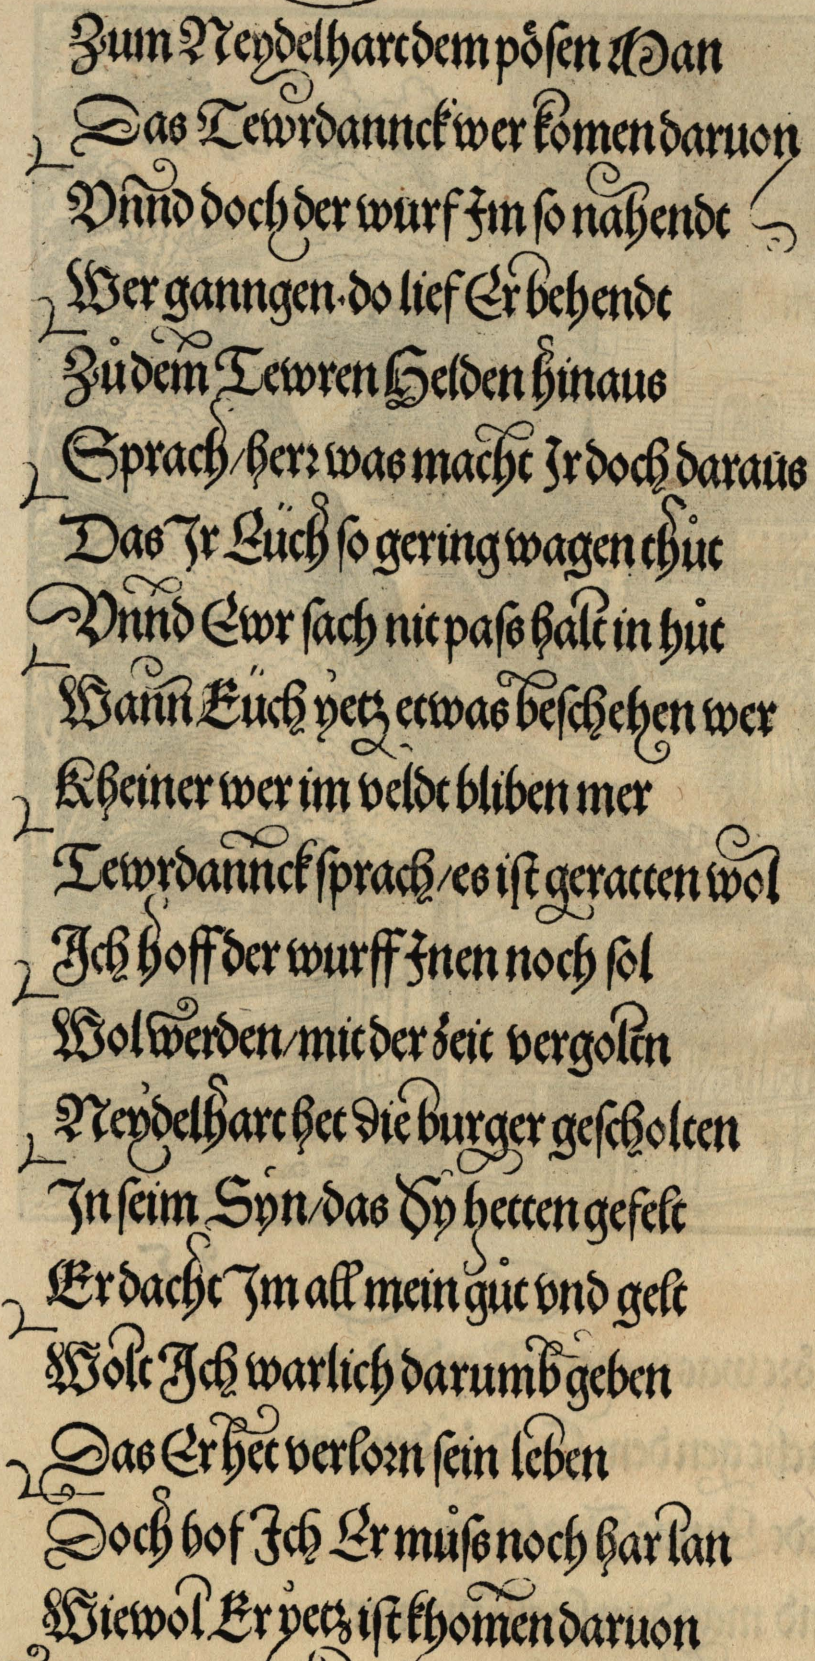 Zum Neydelhart dem pösen Man
Das Tewrdannck wer komen daruon
Vnnd doch der wurf Im so nahendt
Wer ganngen. do lief Er behendt
Zů dem Tewren Helden hinaus
Sprach / herr was macht Ir doch daraus
Das Ir Eüch so gering wagen thůt
Vnnd Ewr sach nit pass halt in hůt
Wann Eüch yetz etwas beschehen wer
Kheiner wer im veldt bliben mer
Tewrdannck sprach / es ist geratten wol
Ich hoff der wurff Inen noch sol
Wol werden / mit der zeit vergoltn
Neydelhart het die burger gescholten
In seim Syn / das Sy hetten gefelt
Er dacht Im all mein gůt vnd gelt
Wolt Ich warlich darumb geben
Das Er het verlorn sein leben
Doch hof Ich Er můss noch har lan
Wiewol Er yetz ist khomen daruon